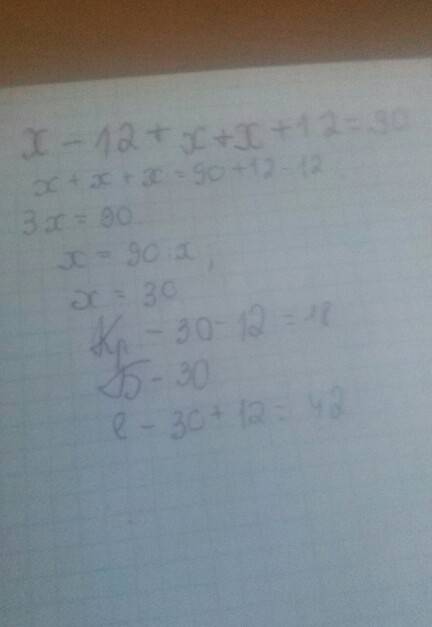 x - 12 + x + x + 12 = 90
x + x + x = 90 + 12 - 12
3x = 90
x = 90 : x ;
x = 30
Кр - 30 - 12 = 18
Б - 30
с - 30 + 12 = 42